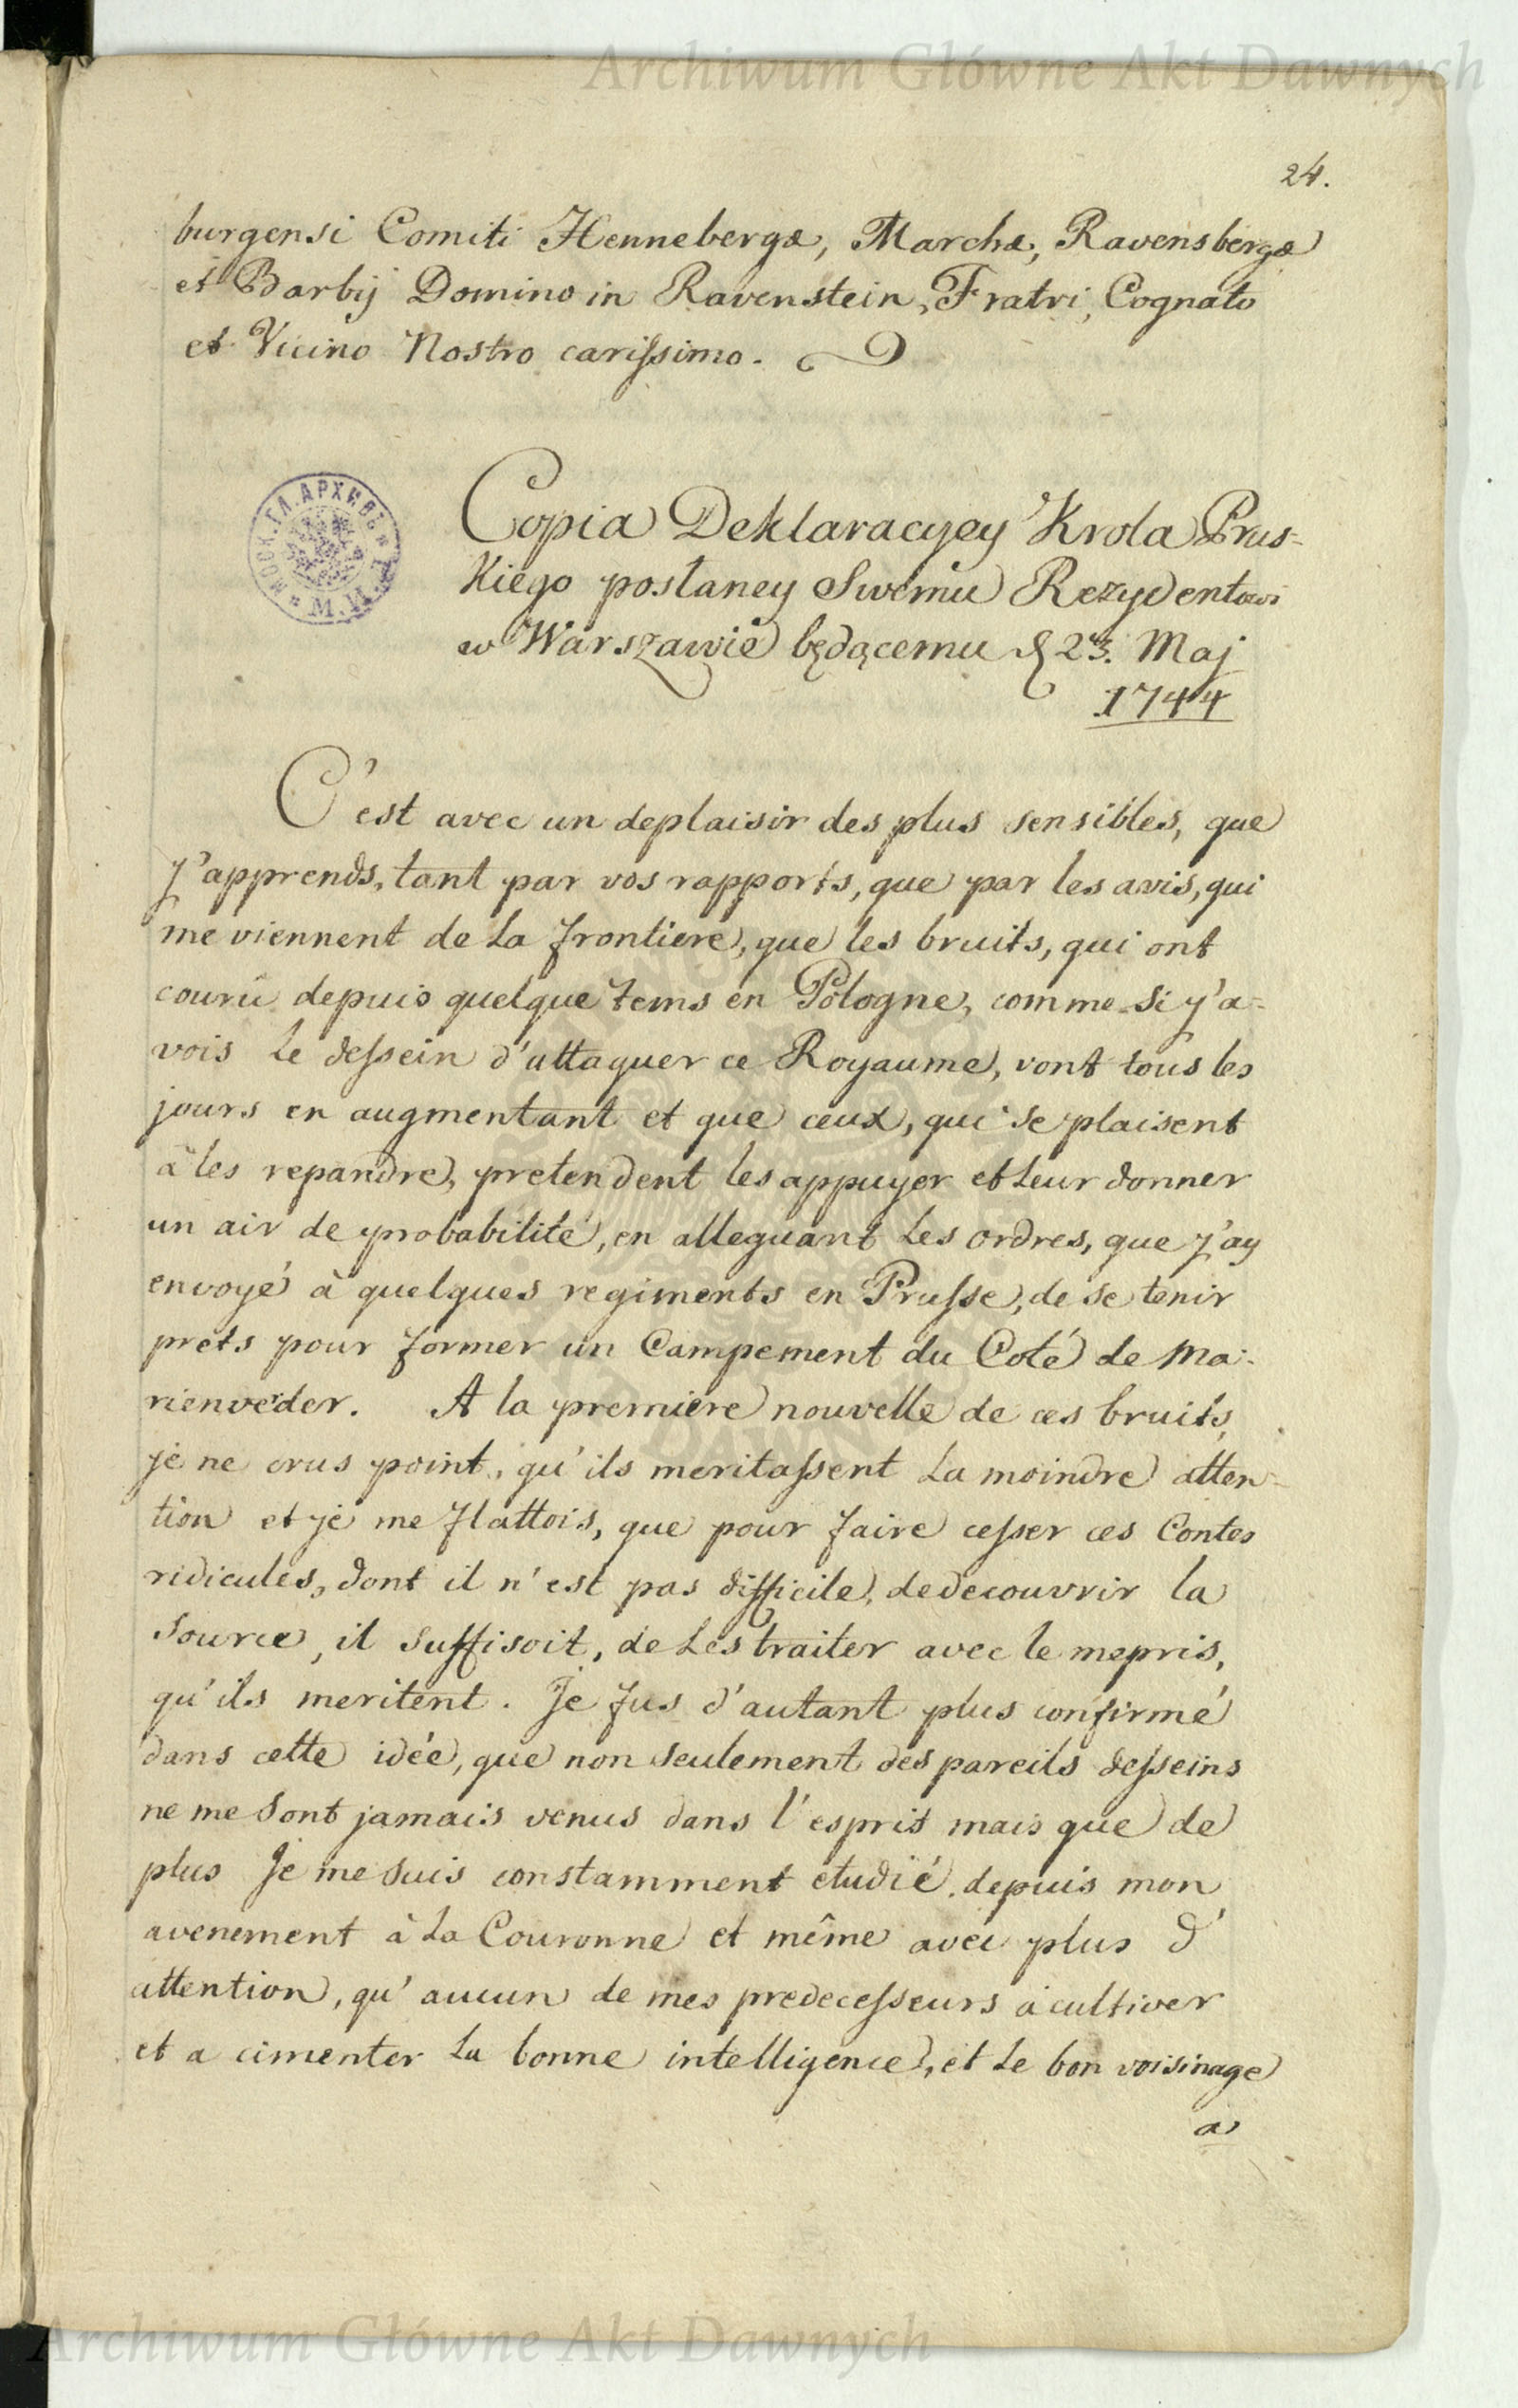 Archiwum Główne Akt Dawnych
24.
burgensi Comiti Hennebergæ, Marchæ, Ravensbergæ
et Barbij Domino in Ravenstein, Fratri, Cognato
et Vicino Nostro carissimo.
МОСК. ГЛ. АРХИВЪ
М.И.Д.
Copia Deklaracyey Krola Prus-
kiego postaney Swemu Rezydentowi
w Warszawie będącemu d 23. Maj
1744
C'est avec un deplaisir des plus sensibles, que
j'apprends, tant par vos rapports, que par les avis, qui
me viennent de la frontiere, que les bruits, qui ont
couru depuis quelque tems en Pologne, comme si j'a-
vois le dessein d'attaquer ce Royaume, vont tous les
jours en augmentant et que ceux, qui se plaisent
à les repandre, pretendent les appuyer et leur donner
un air de probabilité, en alleguant les ordres, que j'ay
envoyé à quelques regiments en Prusse, de se tenir
prets pour former un Campement du Coté de Ma-
rienveder. A la premiere nouvelle de ces bruits,
je ne crus point, qu'ils meritassent la moindre atten-
tion et je me flattois, que pour faire cesser ces Contes
ridicules, dont il n'est pas difficile, de decouvrir la
Source, il suffisoit, de les traiter avec le mepris,
qu'ils meritent. Je fus d'autant plus confirmé
dans cette idée, que non seulement des pareils desseins
ne me sont jamais venus dans l'esprit mais que de
plus Je me suis constamment etudié, depuis mon
avenement à la Couronne et même avec plus d'
attention, qu'aucun de mes predecesseurs à cultiver
et a cimenter la bonne intelligence, et le bon voisinage
a
Archiwum Główne Akt Dawnych